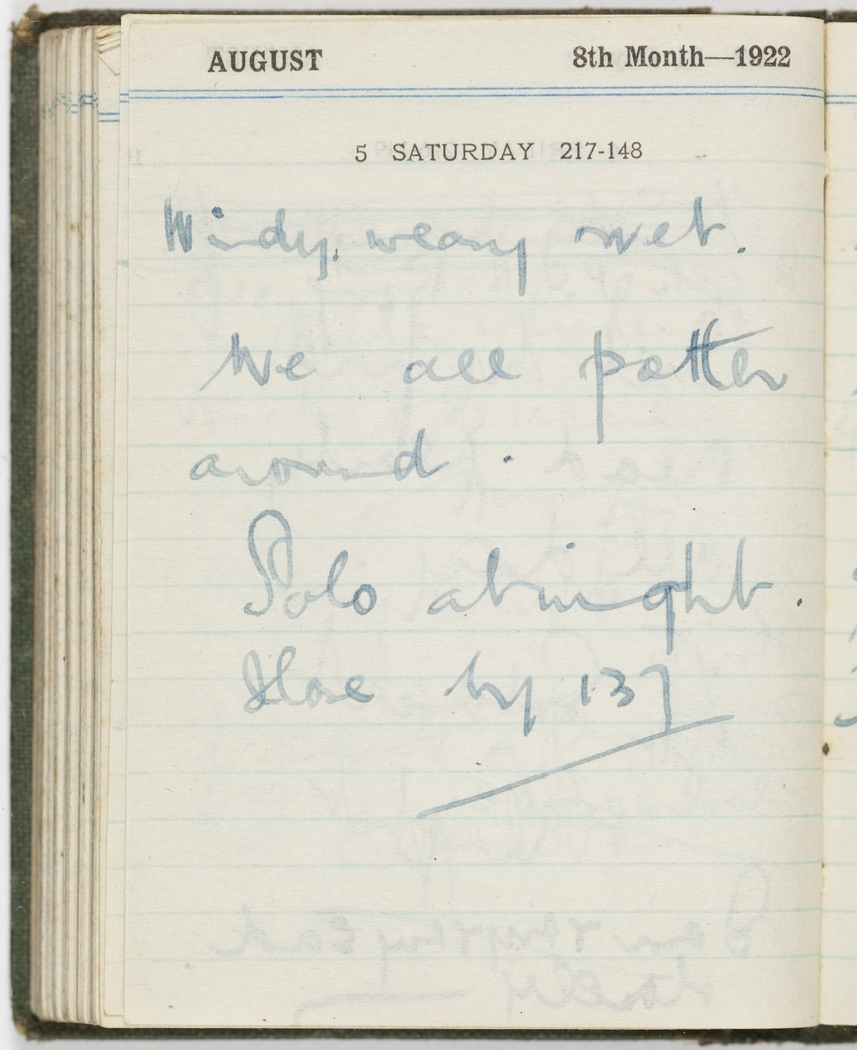 AUGUST 8th Month—1922
5 SATURDAY 217-148
Windy, weary wet.
We all potter
around.
Polo at night.
by 137